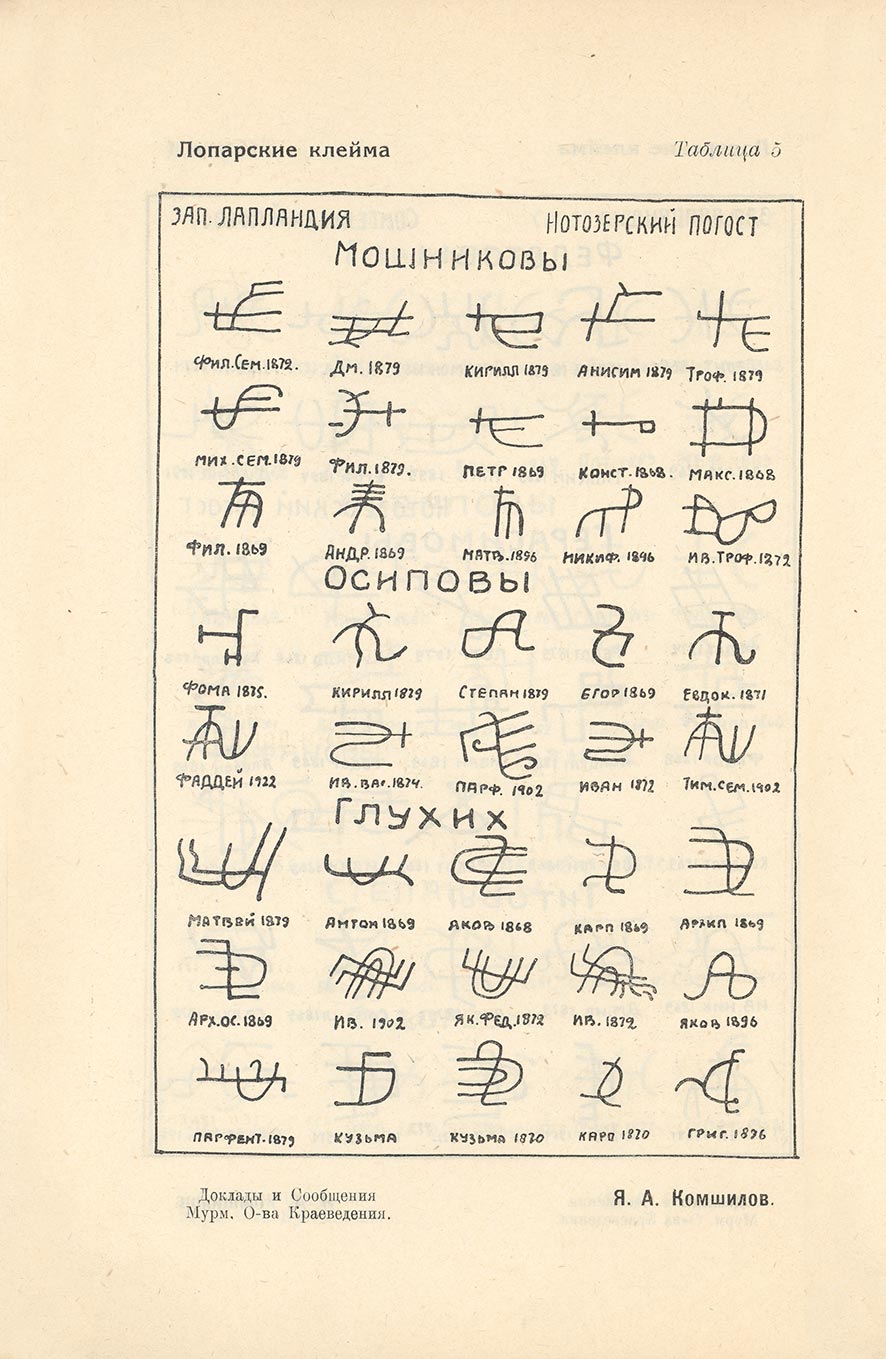 Лопарские клейма Таблица 5
ЗАП. ЛАПЛАНДИЯ НОТОЗЕРСКИЙ ПОГОСТ
МОШНИКОВЫ
ФИЛ.СЕМ.1872. ДМ. 1879 КИРИЛЛ 1879 АНИСИМ 1879 ТРОФ. 1879
МИХ.СЕМ.1879 ФИЛ.1879. ПЕТР 1869 КОНСТ.1868. МАКС.1868
ФИЛ. 1869 АНДР.1869 МАТВ.1896 НИКИФ. 1896 ИВ.ТРОФ.1872
ОСИПОВЫ
ФОМА 1875. КИРИЛЛ 1879 СТЕПАН 1879 ЕГОР 1869 ЕВДОК. 1871
ФАДДЕЙ 1922 ИВ.ВАС.1874. ПАРФ. 1902 ИВАН 1872 ТИМ.СЕМ.1902
ГЛУХИХ
МАТВЕЙ 1879 АНТОН 1869 ЯКОВ 1868 КАРП 1869 АРХИП 1869
АРХ.ОС.1869 ИВ. 1902 ЯК.ФЕД.1872 ИВ. 1872 ЯКОВ 1896
ПАРФЕНТ.1879 КУЗЬМА КУЗЬМА 1870 КАРП 1870 ГРИГ. 1896
Доклады и Сообщения
Мурм. О-ва Краеведения.
Я. А. Комшилов.